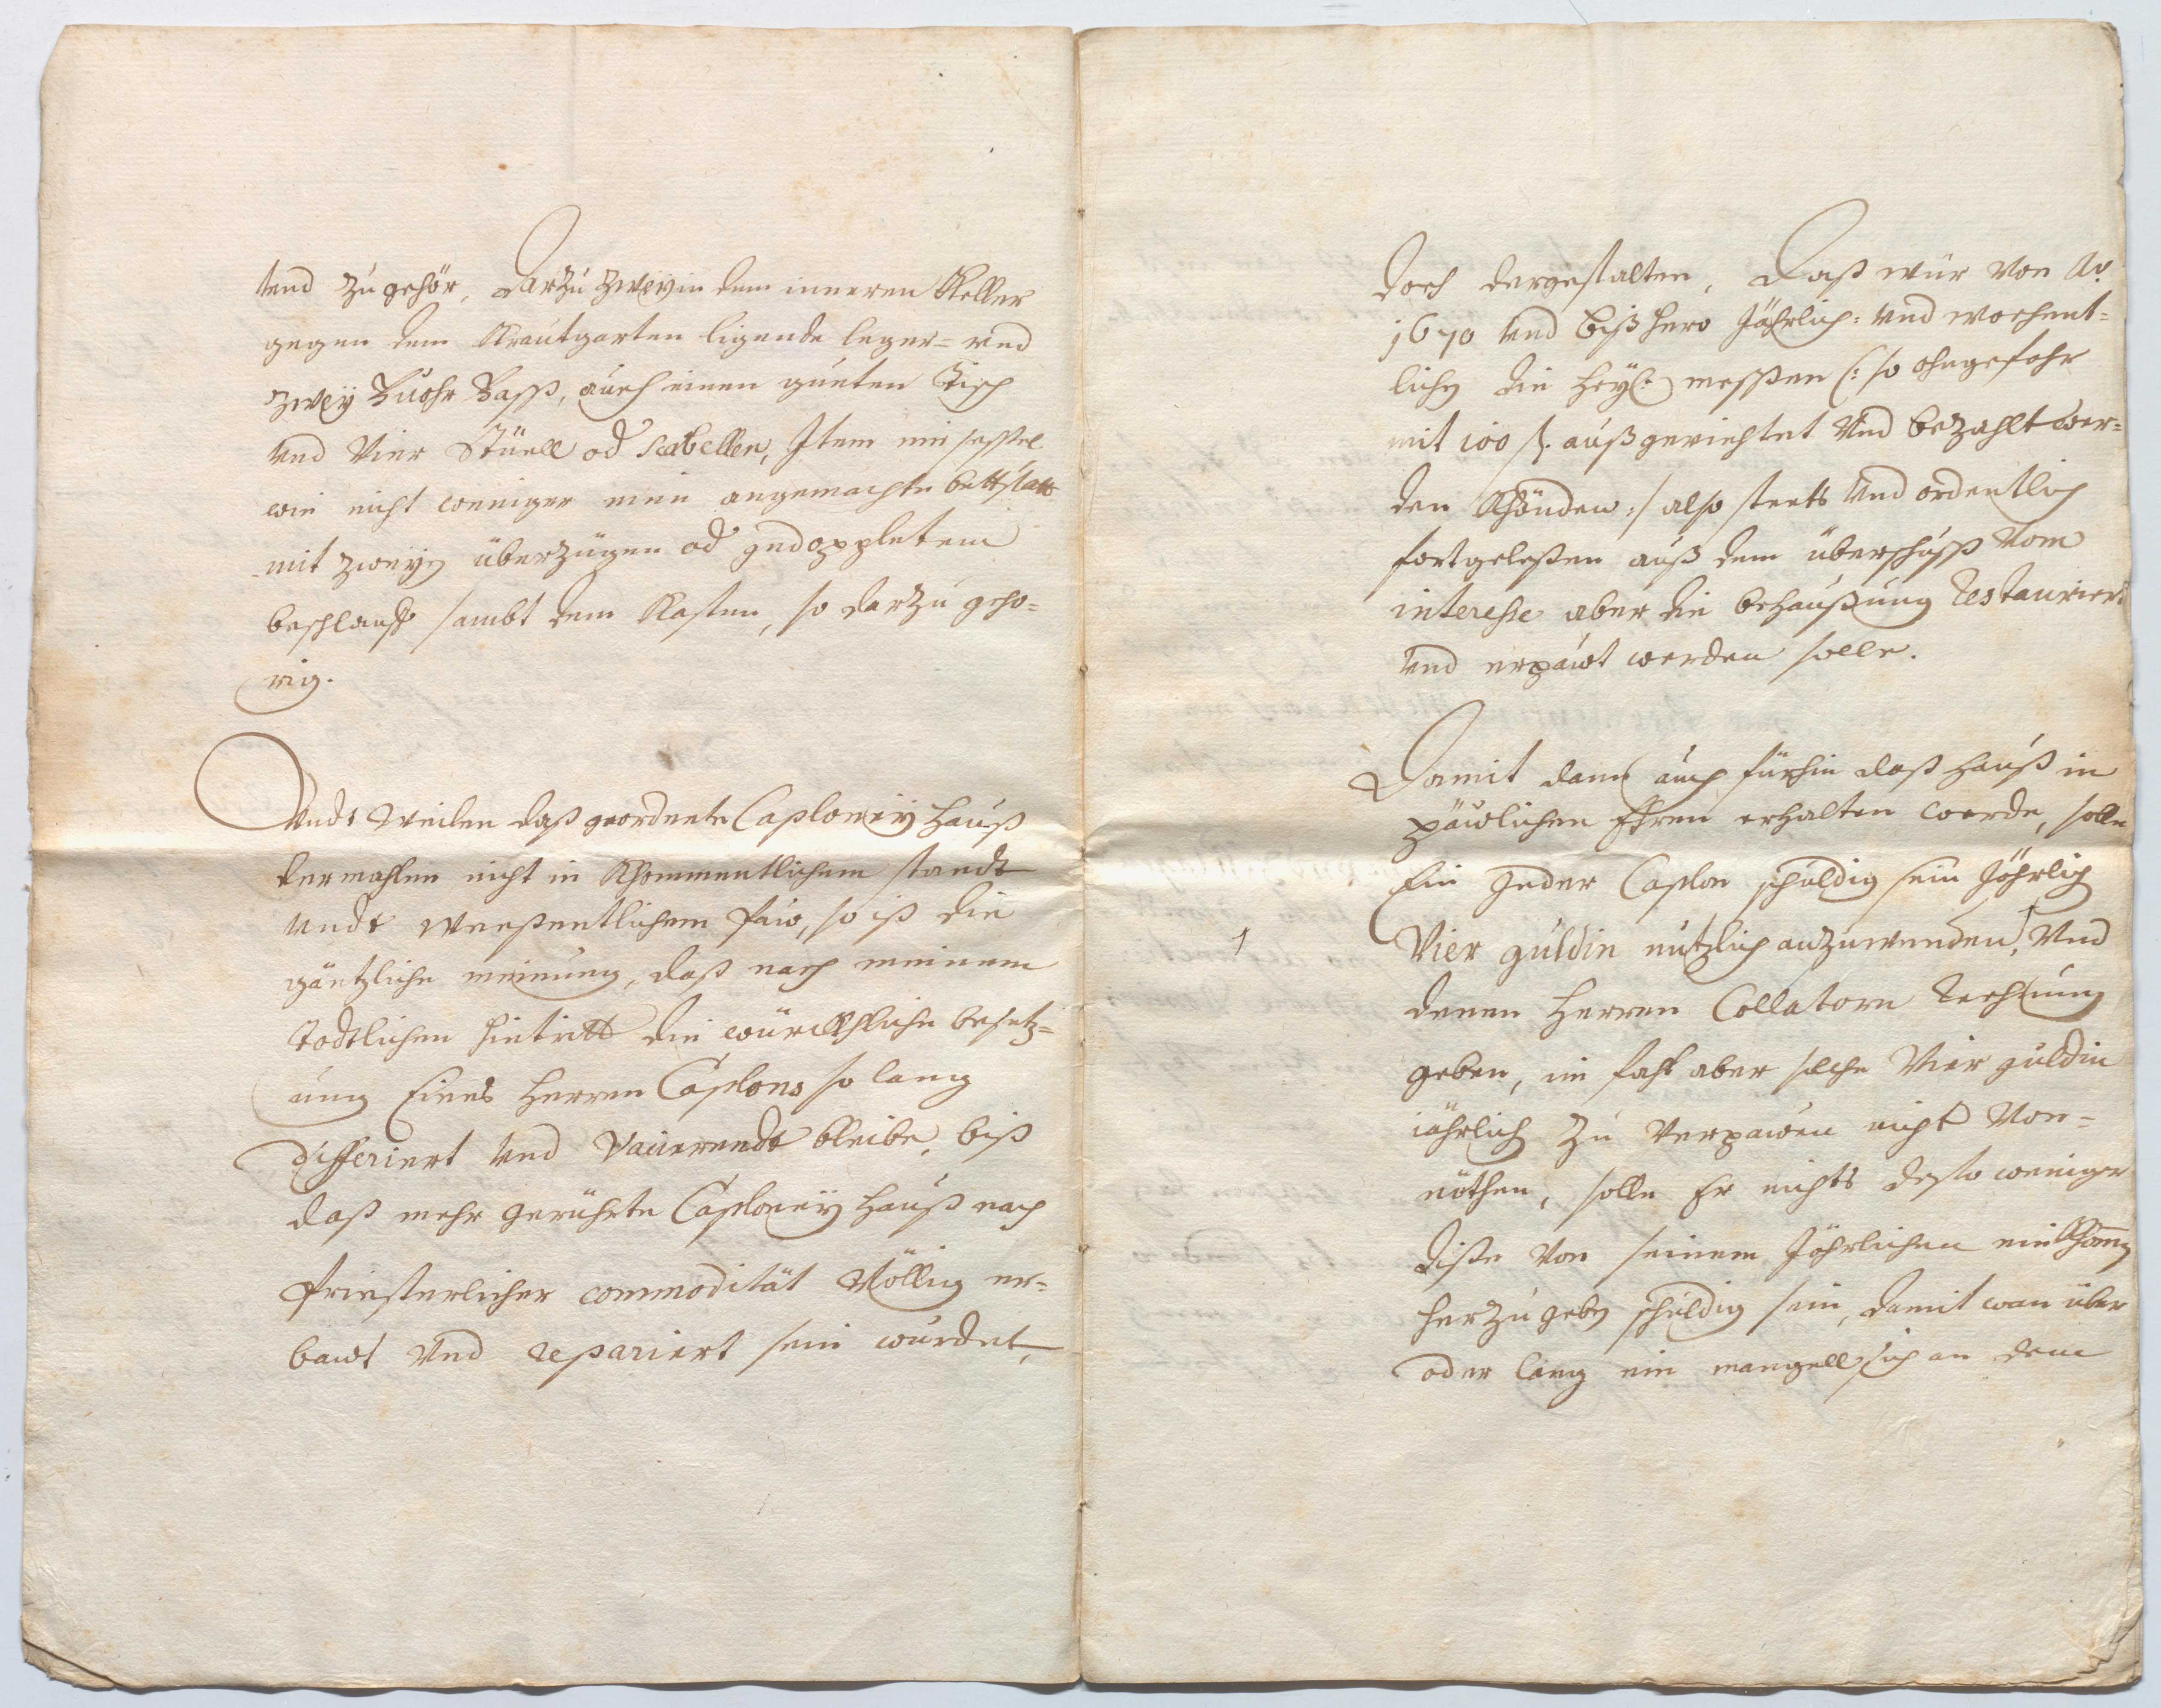 und zugehör, Darzu zweÿ in dem inneren Keller
gegen dem Krautgarten ligende leger= und
zweÿ Fuohr Fass, auch einen gueten Tisch
und Vier Stüell od Scabellen, Item ein sessel
wie nicht weniger eine angemachte bettstatt
mit zweÿ überzügen od gedoppletem
beschlauff sambt dem Kasten, so darzu geho=
rig.
Undt Weilen daß geordnete Caploneÿ Hauß
dermahlen nicht in Khommentlichem standt
undt weeßentlichem Paw, so ist die
gäntzliche meinung, daß nach meinem
todtlichen hintritt die würckhliche besetz=
ung Eines Herren Caplons so lang
differiert und Vacierendt bleibe, biß
daß mehr gerührte Caploneÿ Hauß nach
Priesterlicher commodität Völlig er=
bawt und repariert sein würdet,
Doch dergestalten, Daß wür von Ao.
1670 und bißhero Jährlich: und wochent=
lich die Heÿl: messen (: so ohngefohr
mit 100 fl. außgerichtet und bezahlt wer=
den Khönden :/ also steets und ordentlich
fortgeleßen auß dem überschuss vom
interesse aber die behaußung restauriert
und erpawt werden solle.
Damit dann auch fürhin daß Hauß in
päwlichen Ehren erhalten werde, solle
Ein Jeder Caplon schuldig sein Jöhrlich
1
Vier guldin nutzlich anzuwenden, Und
denen Herren Collatorn Rechnung
geben, im fahl aber solche Vier guldin
iährlich zu Verpawen nicht Von=
nöthen, solle Er nichts desto weniger
diße Von seinem Jöhrlichen einkhomm
herzugeben schuldig sein, damit wan über
oder lang ein mangell sich an dem